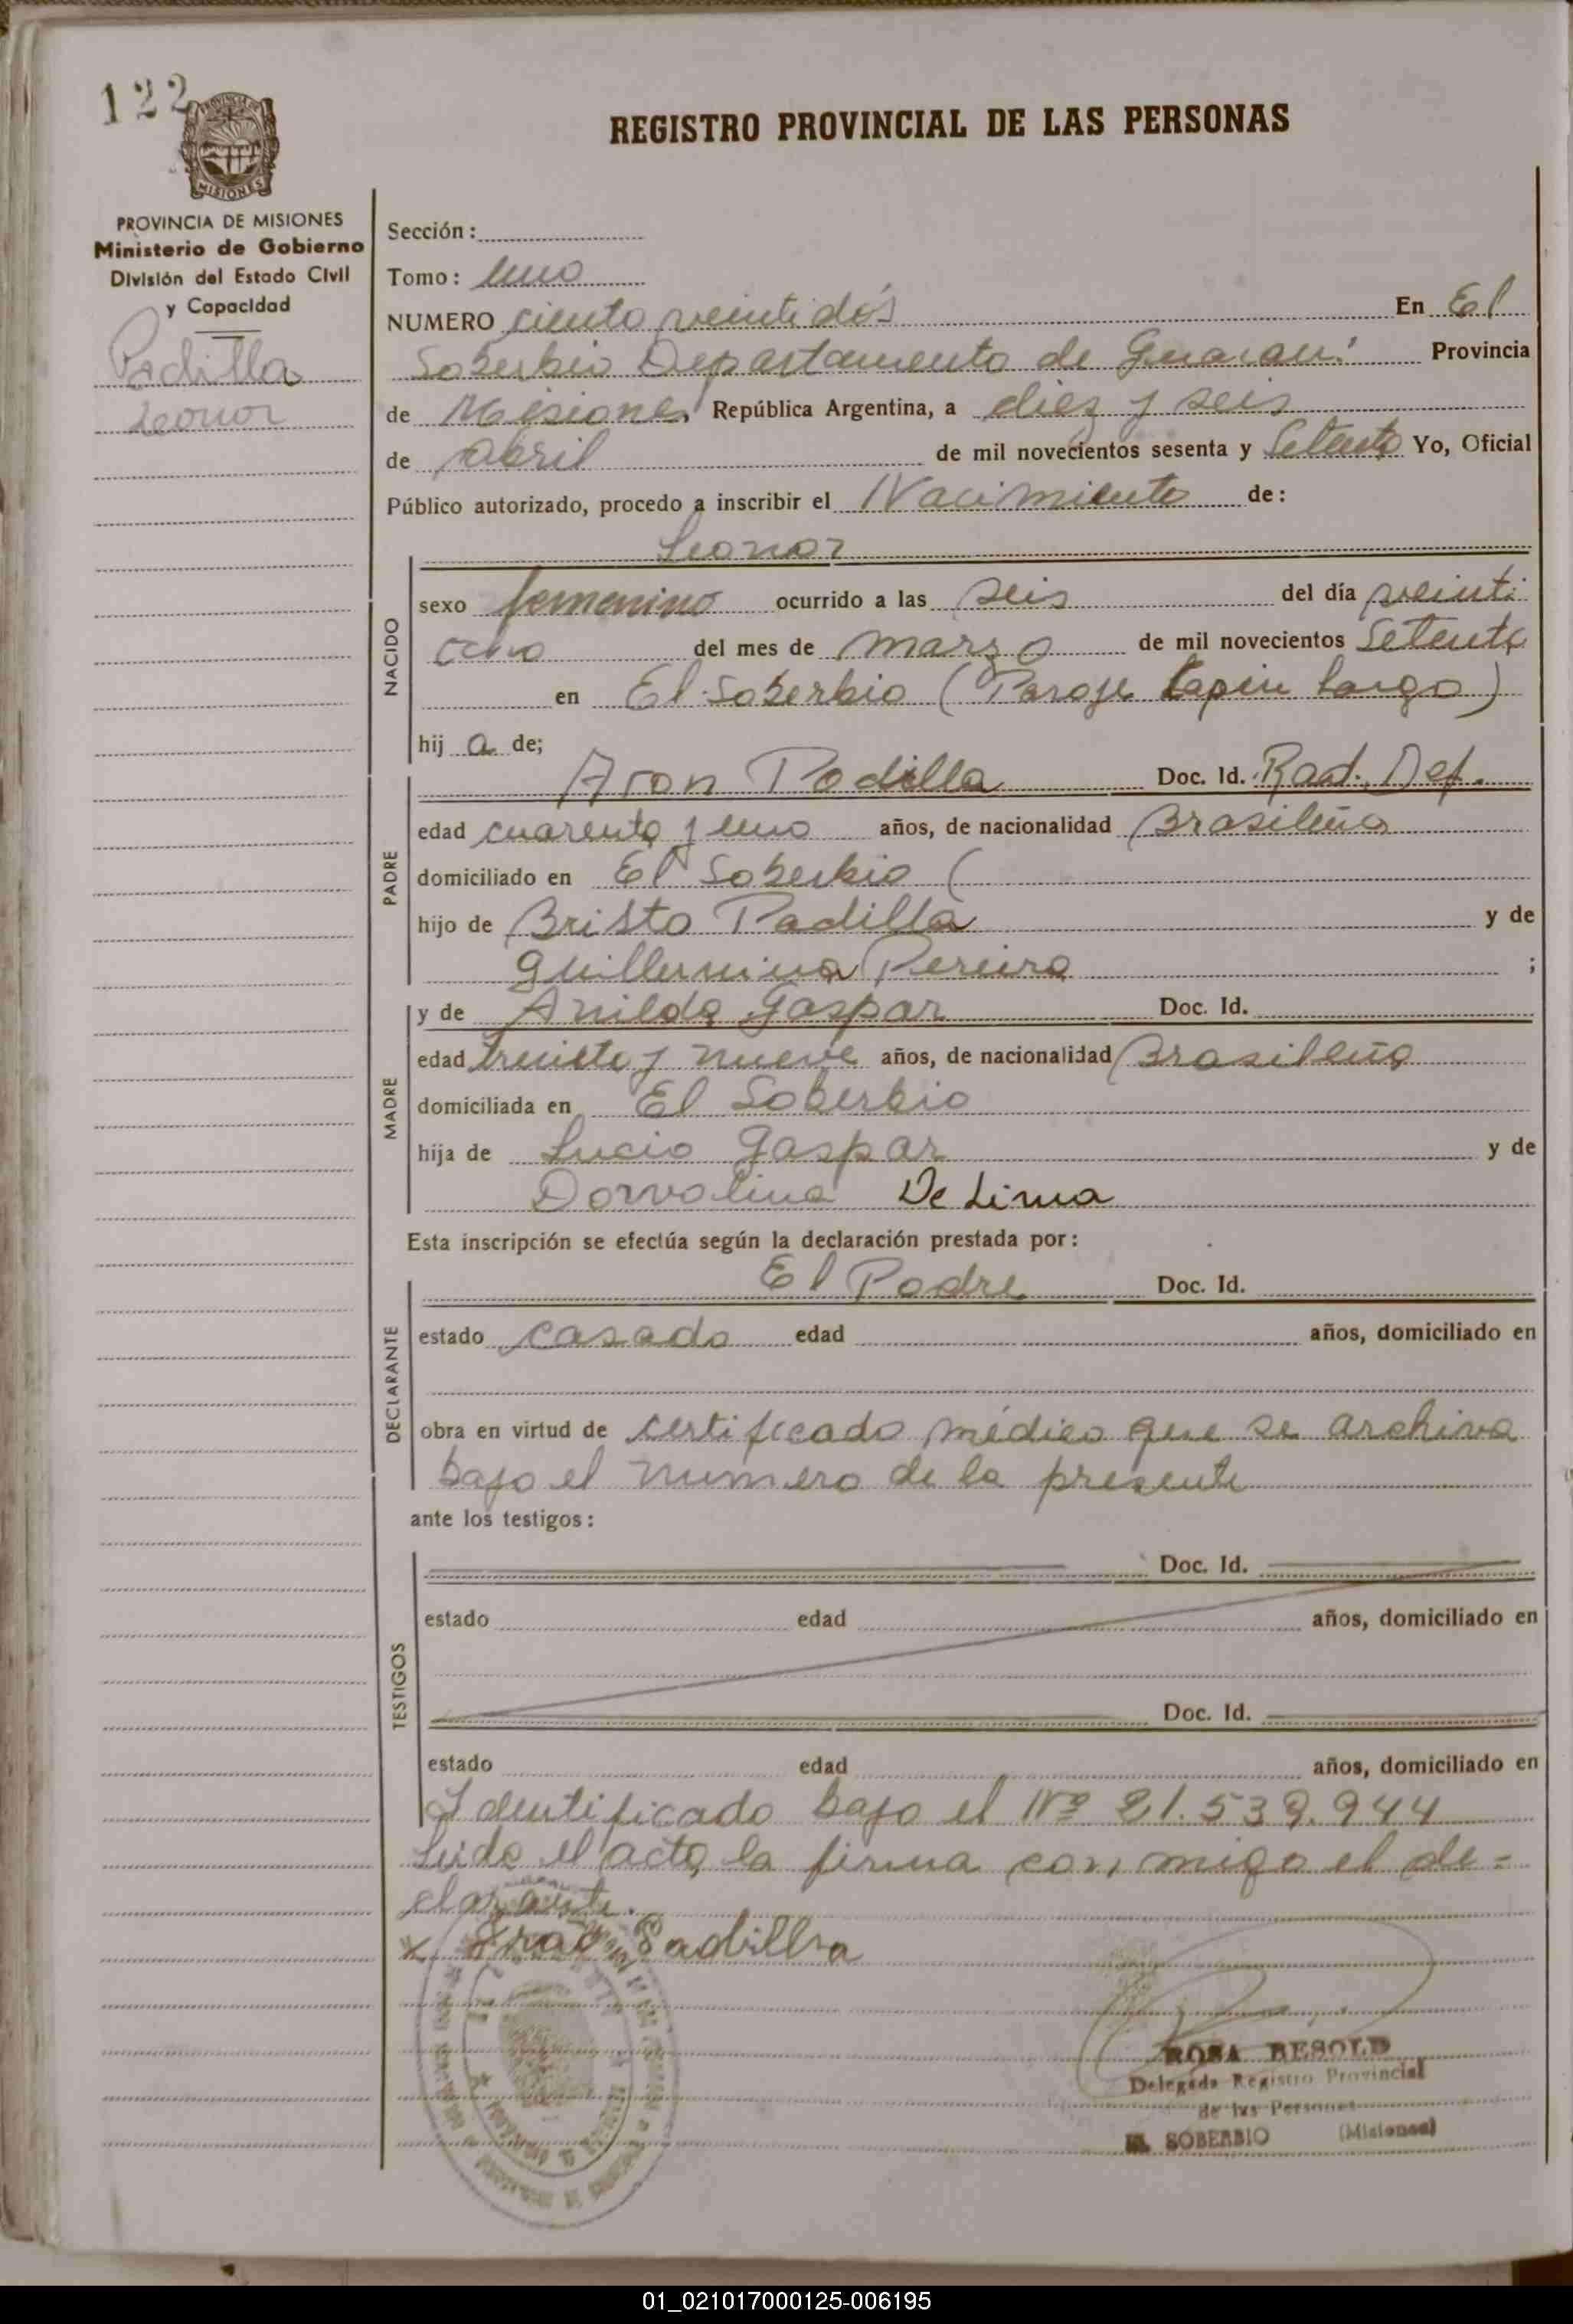 122
REGISTRO PROVINCIAL DE LAS PERSONAS
MISIONES
PROVINCIA DE MISIONES
Ministerio de Gobierno
División del Estado Civil
y Capacidad
Padilla
Leonor
Sección:
Tomo: Uno
NUMERO ciento veintidós En El
Soberbio Departamento de Guaraní Provincia
de Misiones República Argentina, a diez y seis
de abril de mil novecientos sesenta y Setenta Yo, Oficial
Público autorizado, procedo a inscribir el Nacimiento de:
Leonor
NACIDO
sexo femenino ocurrido a las seis del día veinti
ocho del mes de marzo de mil novecientos Setenta
en El Soberbio (Paraje Capin Largo)
hij a de;
PADRE
Aron Padilla Doc. Id. Rad. Def.
edad cuarenta y uno años, de nacionalidad Brasileña
domiciliado en El Soberbio (
hijo de Bristo Padilla y de
Guillermina Pereira ;
MADRE
y de Anilda Gaspar Doc. Id.
edad treinta y nueve años, de nacionalidad Brasileña
domiciliada en El Soberbio
hija de Lucio Gaspar y de
Dorvalina De Lima
Esta inscripción se efectúa según la declaración prestada por:
DECLARANTE
El Padre Doc. Id.
estado casado edad años, domiciliado en
obra en virtud de certificado médico que se archiva
bajo el numero de la presente
ante los testigos:
TESTIGOS
Doc. Id.
estado edad años, domiciliado en
Doc. Id.
estado edad años, domiciliado en
Identificado bajo el Nº 21.539.944
Leida el acta, la firma conmigo el de=
clarante.
x Padilla
ROSA BESOLD
Delegada Registro Provincial
de las Personas
EL SOBERBIO (Misiones)
01_021017000125-006195